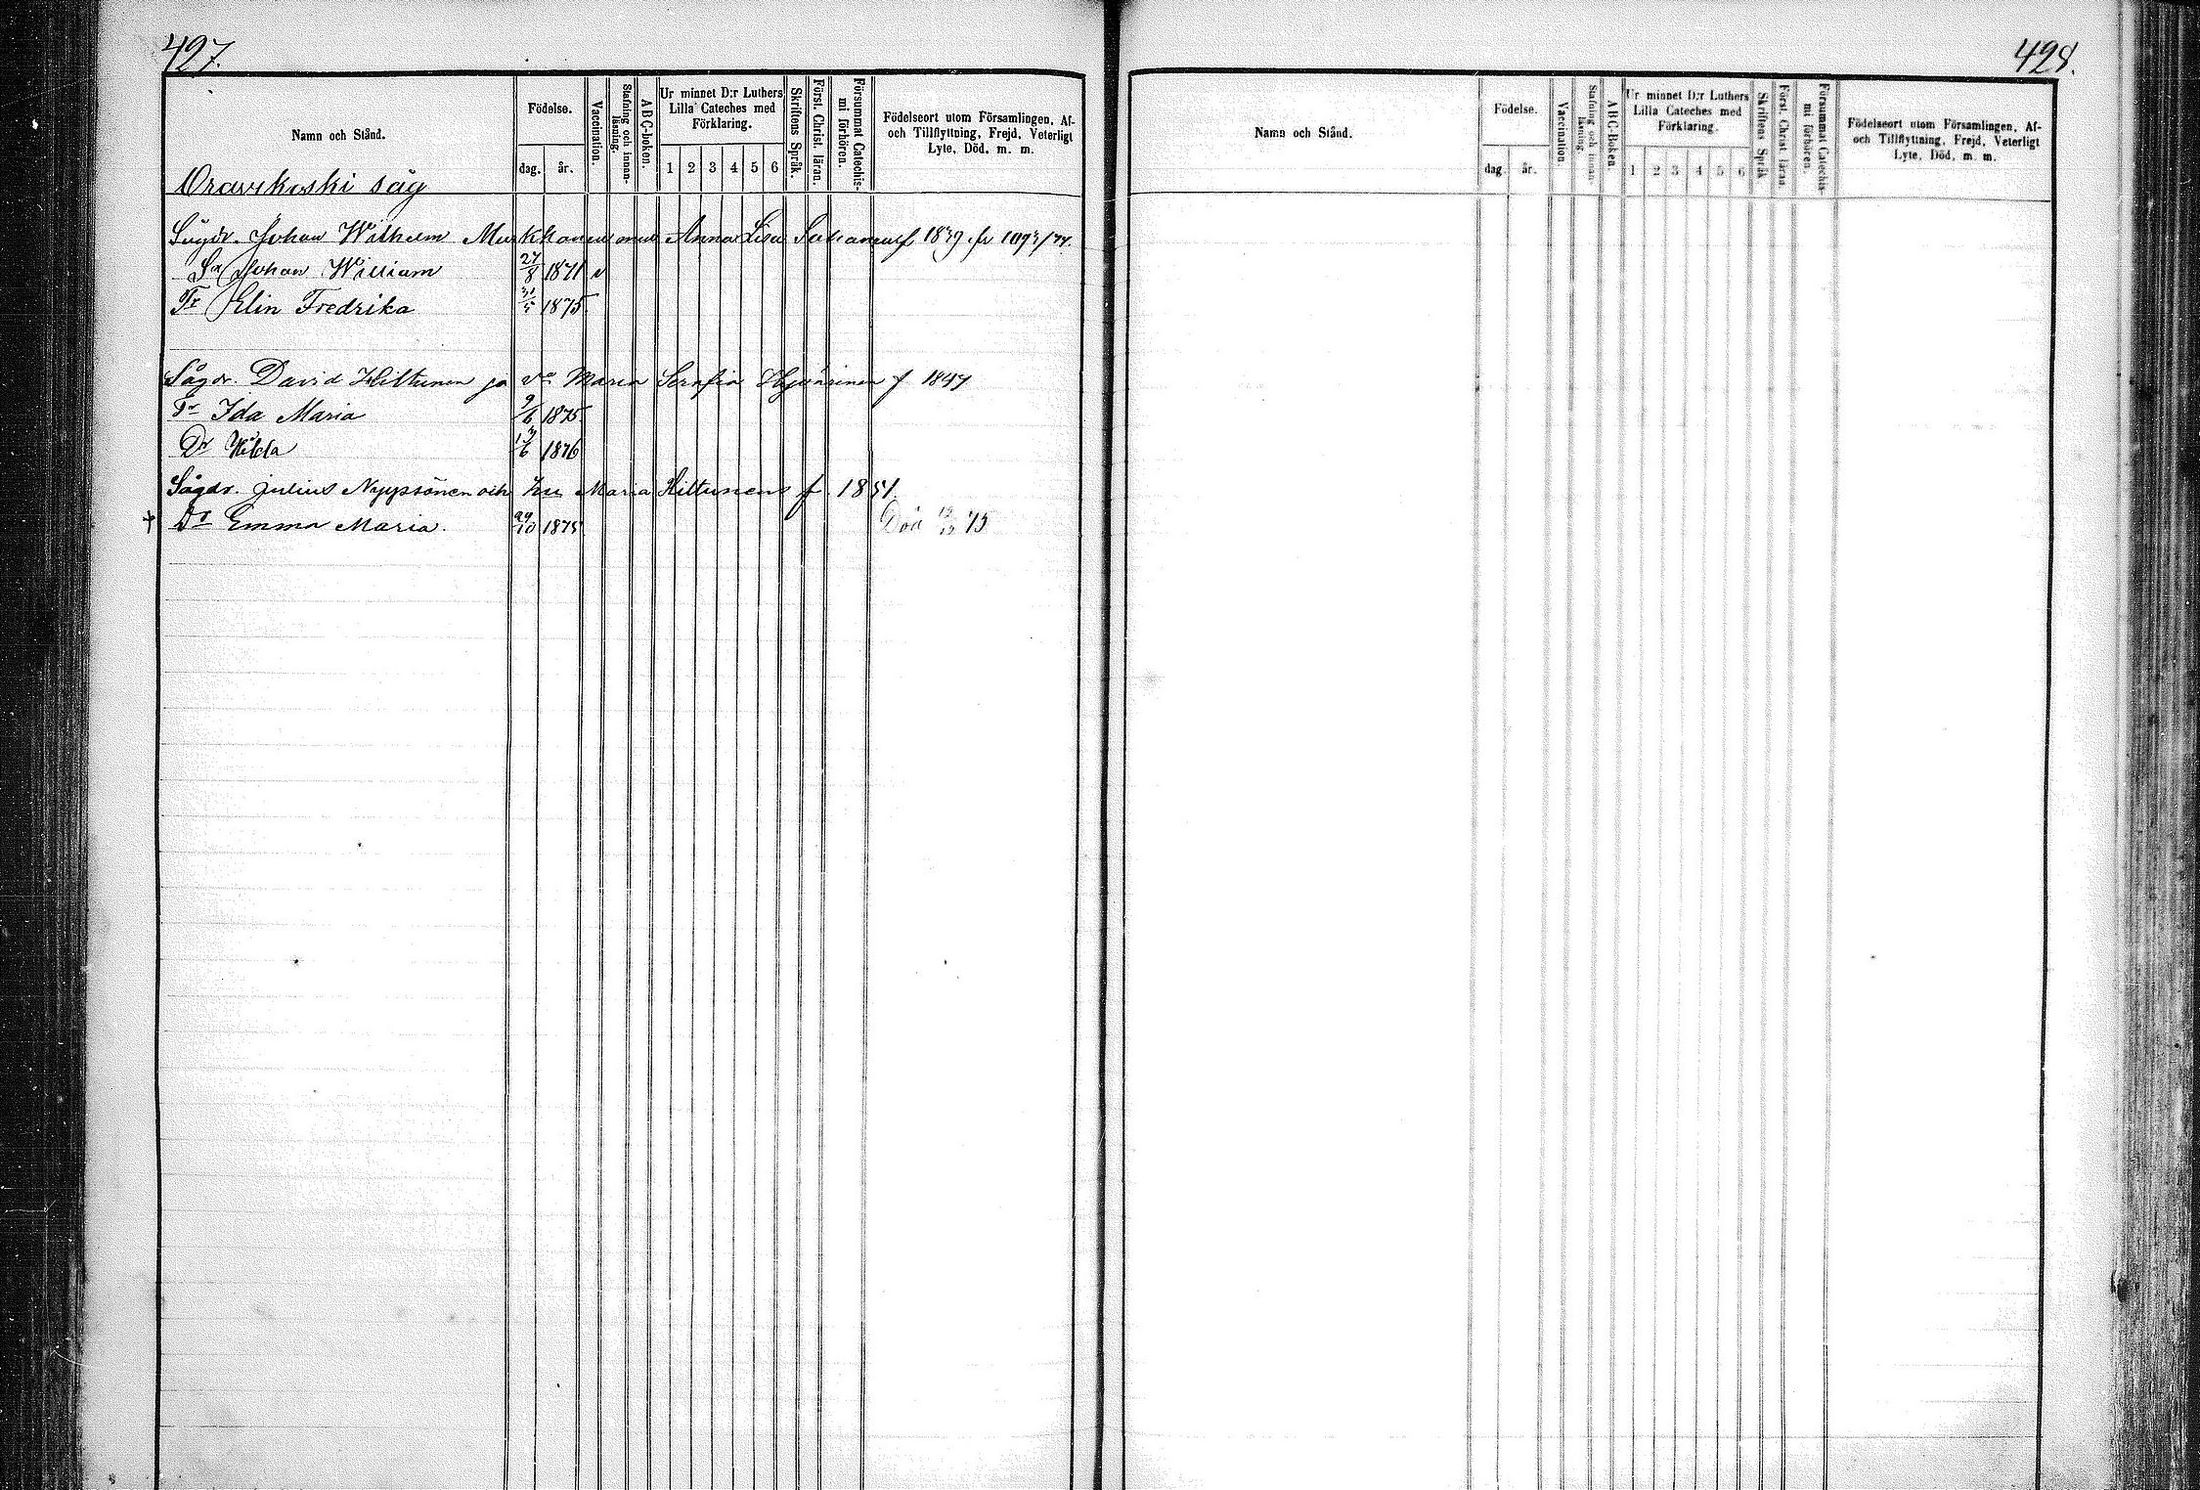 427.
Namn och Stånd.
Födelse.
dag.
år.
Vaccination.
Stafning och innan-
läsning.
ABC-boken.
Ur minnet D:r Luthers
Lilla Cateches med
Förklaring.
1 2 3 4 5 6
Skriftens Språk.
Först. Christ. läran.
Försummat Catechis-
mi förhören.
Födelseort utom Församlingen, Af-
och Tillflyttning, Frejd, Veterligt
Lyte, Död, m. m.
Oravikoski såg
Sågdr. Johan Wilhelm Anna Lisa f 1839. 1093/74.
Sn Johan William 27/8 1871 v
Tr Elin Fredrika 31/5 1875
Sågdr. David Hiltunen ja vo Maria Serafia f 1847
Tr Ida Maria 9/6 1875
Dr Hilda 1876
Sågdr. Julius Nyyssönen och hu Maria Hiltunen f. 1851.
† Dr Emma Maria. 29/10 1875 Död 12/12 75
428.
Namn och Stånd.
Födelse.
dag
år.
Vaccination.
Stafning och innan-
läsning.
ABC-Boken.
Ur minnet D:r Luthers
Lilla Cateches med
Förklaring.
1 2 3 4 5 6
Skriftens Språk
Först. Christ. läran.
Försummat Catechis-
mi förhören.
Födelseort utom Församlingen, Af-
och Tillflyttning, Frejd, Veterligt
Lyte, Död, m. m.